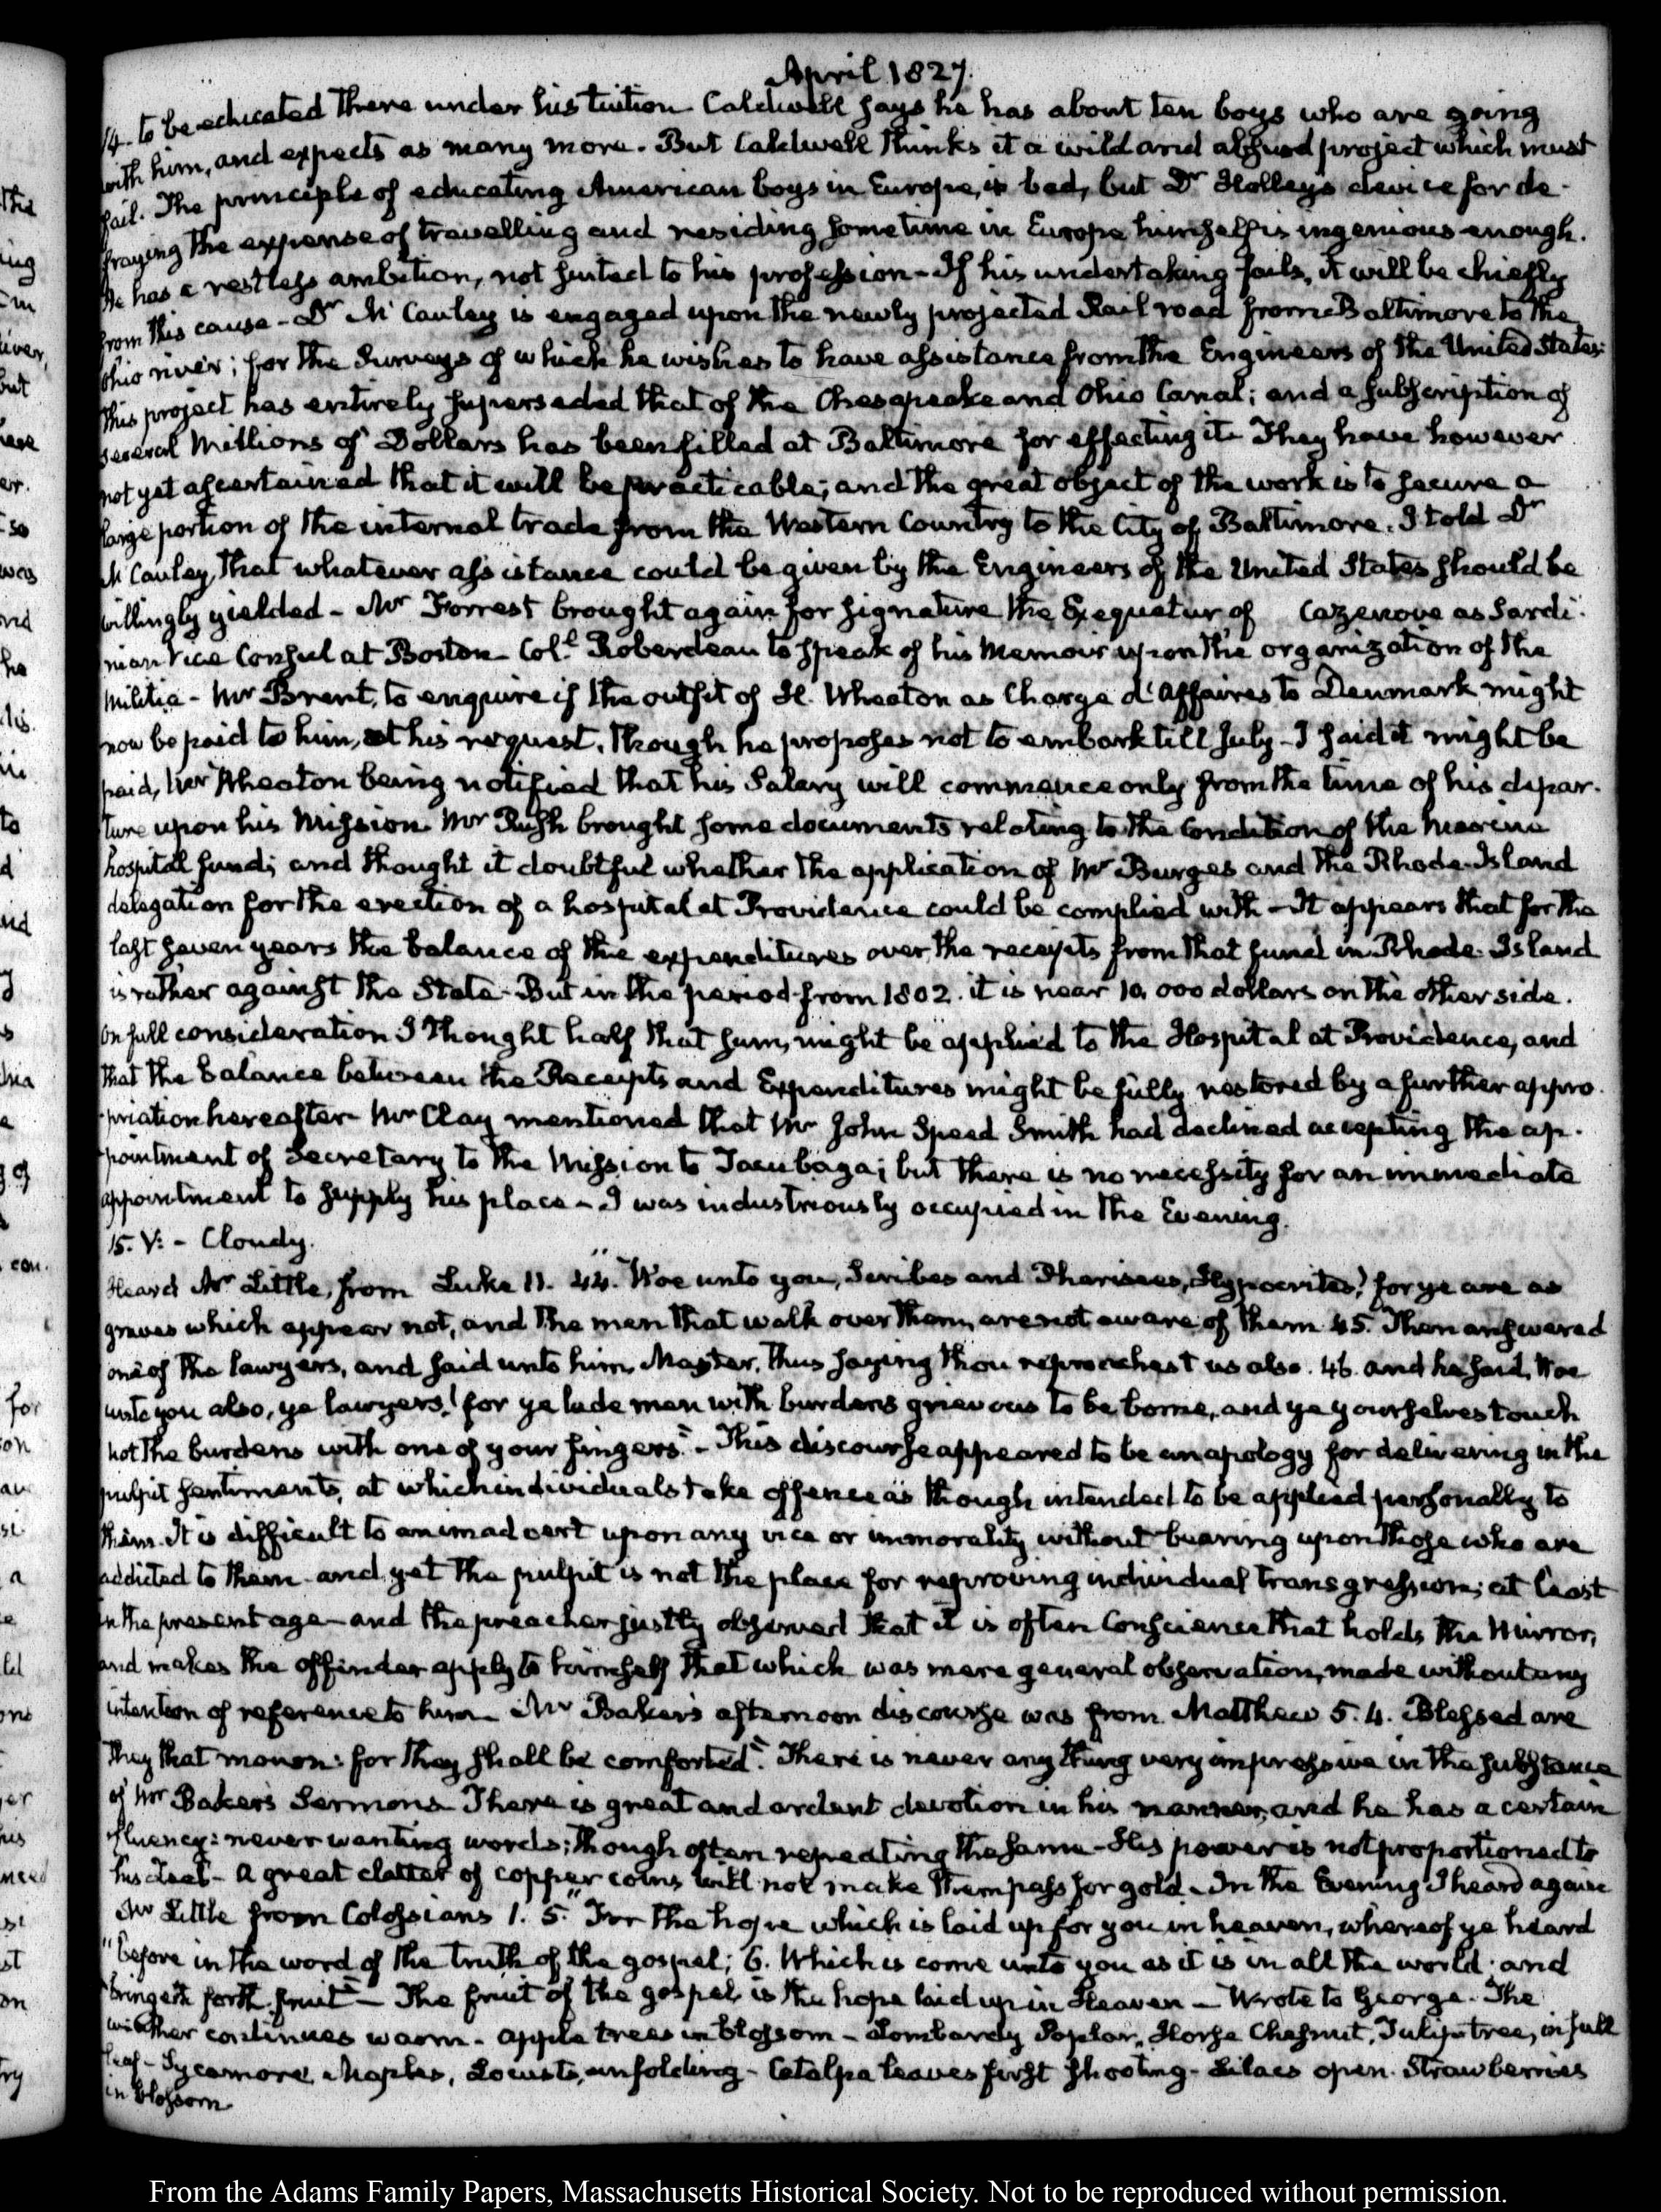 April 1827.
14. to be educated there under his tuition. Caldwell says he has about ten boys who are going
with him, and expects as many more. But Caldwell thinks it a wild and absurd project which must
fail. The principle of educating American boys in Europe, is bad, but Dr Holley's device for de-
fraying the expense of travelling and residing some time in Europe himself is ingenious enough.
He has a restless ambition, not suited to his profession - If his undertaking fails, it will be chiefly
from this cause - Dr McCauley is engaged upon the newly projected Rail road from Baltimore to the
Ohio river; for the Surveys of which he wishes to have assistance from the Engineers of the United States:
this project has entirely superseded that of the Chesapeake and Ohio Canal; and a subscription of
several Millions of Dollars has been filled at Baltimore for effecting it. They have however
not yet ascertained that it will be practicable; and the great object of the work is to secure a
large portion of the internal trade from the Western Country to the City of Baltimore. I told Dr
McCauley, that whatever assistance could be given by the Engineers of the United States should be
willingly yielded - Mr Forrest brought again for signature the Exequatur of Cazenove as Sardi-
nian Vice Consul at Boston - Col. Roberdeau to speak of his Memoir upon the organization of the
Militia - Mr Brent, to enquire if the outfit of H. Wheaton as Chargé d'Affaires to Denmark might
now be paid to him, at his request, though he proposes not to embark till July - I said it might be
paid, Mr Wheaton being notified that his Salary will commence only from the time of his depar-
ture upon his Mission. Mr Rush brought some documents relating to the Condition of the Marine
hospital fund; and thought it doubtful whether the application of Mr Burges and the Rhode-Island
delegation for the erection of a hospital at Providence could be complied with - It appears that for the
last seven years the balance of the expenditures over the receipts from that fund in Rhode-Island
is rather against the State - But in the period from 1802. it is near 10,000 dollars on the other side.
On full consideration I thought half that sum, might be applied to the Hospital at Providence, and
that the balance between the Receipts and Expenditures might be fully restored by a further appro-
priation hereafter - Mr Clay mentioned that Mr John Speed Smith had declined accepting the ap-
pointment of Secretary to the Mission to Tacubaya; but there is no necessity for an immediate
appointment to supply his place - I was industriously occupied in the Evening.
15. V: - Cloudy.
Heard Mr Little, from Luke 11. 44. "Woe unto you, Scribes and Pharisees, Hypocrites! for ye are as
graves which appear not, and the men that walk over them, are not aware of them. 45. Then answered
one of the lawyers, and said unto him, Master, thus saying thou reproachest us also. 46. and he said, Woe
unto you also, ye lawyers! for ye lade men with burdens grievous to be borne, and ye yourselves touch
not the burdens with one of your fingers." - This discourse appeared to be an apology for delivering in the
pulpit sentiments, at which individuals take offence as though intended to be applied personally to
them. It is difficult to animadvert upon any vice or immorality without bearing upon those who are
addicted to them - and yet the pulpit is not the place for reproving individual transgression; at least
in the present age - and the preacher justly observed that it is often Conscience that holds the Mirror,
and makes the offender apply to himself that which was mere general observation, made without any
intention of reference to him - Mr Baker's afternoon discourse was from Matthew 5. 4. Blessed are
they that mourn: for they shall be comforted." There is never any thing very impressive in the substance
of Mr Baker's Sermons. There is great and ardent devotion in his manner, and he has a certain
fluency: never wanting words; though often repeating the same - His power is not proportioned to
his zeal - a great clatter of copper coins will not make them pass for gold. In the Evening I heard again
Mr Little from Colossians 1. 5. "For the hope which is laid up for you in heaven, whereof ye heard
"before in the word of the truth of the gospel; 6. Which is come unto you as it is in all the world; and
"bringeth forth fruit" - The fruit of the gospel is the hope laid up in Heaven - Wrote to George. The
weather continues warm - apple trees in blossom - Lombardy Poplar, Horse Chesnut, Tulip tree, in full
leaf - Sycamore, Maples, Locusts, unfolding - Catalpa leaves first shooting - Lilacs open. Strawberries
in blossom.
From the Adams Family Papers, Massachusetts Historical Society. Not to be reproduced without permission.